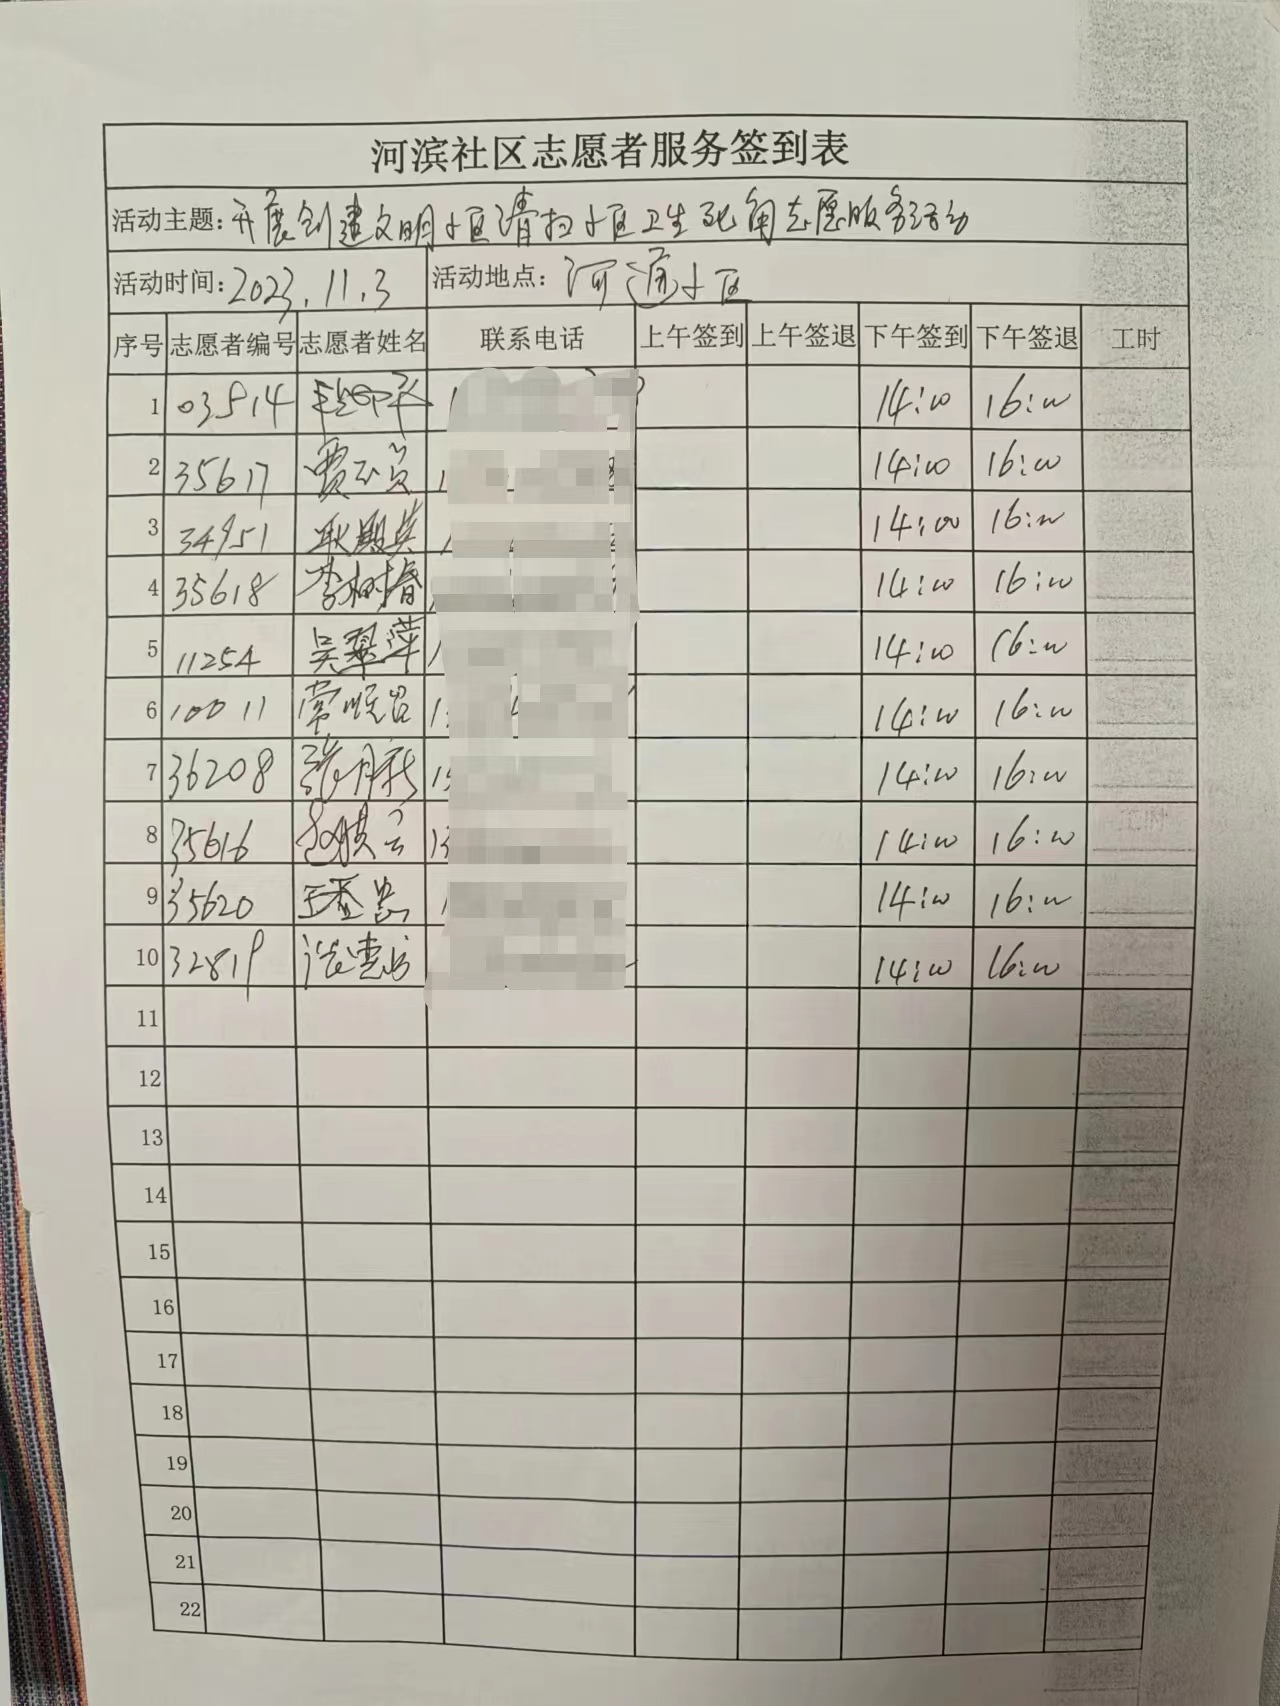 河滨社区志愿者服务签到表
活动主题:开展创建文明小区清扫小区卫生死角志愿服务活动
活动时间:2023.11.3 活动地点:河滨小区
序号 志愿者编号 志愿者姓名 联系电话 上午签到 上午签退 下午签到 下午签退 工时
1 03514 14:00 16:00
2 35617 贾玉贞 14:00 16:00
3 34951 耿殿英 14:00 16:00
4 35618 李树春 14:00 16:00
5 11254 吴翠萍 14:00 16:00
6 10011 常顺 14:00 16:00
7 36208 张月秋 14:00 16:00
8 35616 赵 14:00 16:00
9 35620 王 14:00 16:00
10 32819 14:00 16:00
11
12
13
14
15
16
17
18
19
20
21
22